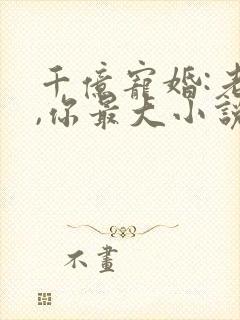 千億寵婚:老
,你最大小説
不畫